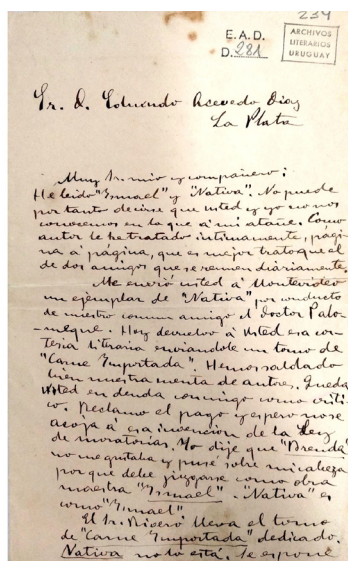 234
E.A.D.
D. 281
ARCHIVOS
LITERARIOS
URUGUAY
Sr. D. Eduardo Acevedo Diaz
La Plata
Muy Sr. mio y compañero:
He leido "Ismael" y "Nativa". No puede
por tanto decirse que usted y yo no nos
conocemos en lo que á mi atañe. Como
autor le he tratado intimamente, pági-
na á página, que es mejor trato que el
de dos amigos que se reunen diariamente.
Me envió usted á Montevideo
un ejemplar de "Nativa" por conducto
de nuestro comun amigo el doctor Palo-
meque. Hoy devuelvo á Usted esa cor-
tesia literaria enviandole un tomo de
"Carne Importada". Hemos saldado
bien nuestra cuenta de autores. Queda
Usted en deuda conmigo como criti-
co. Reclamo el pago y espero no se
acoja á esa invencion de la Ley
de moratorias. Yo dije que "Brenda"
no me gustaba y puse sobre mi cabeza
porque debe juzgarse como obra
maestra "Ismael". "Nativa" es
como "Ismael"
El Sr. lleva el tomo
de "Carne Importada" dedicado.
Nativa no lo está. Se espone